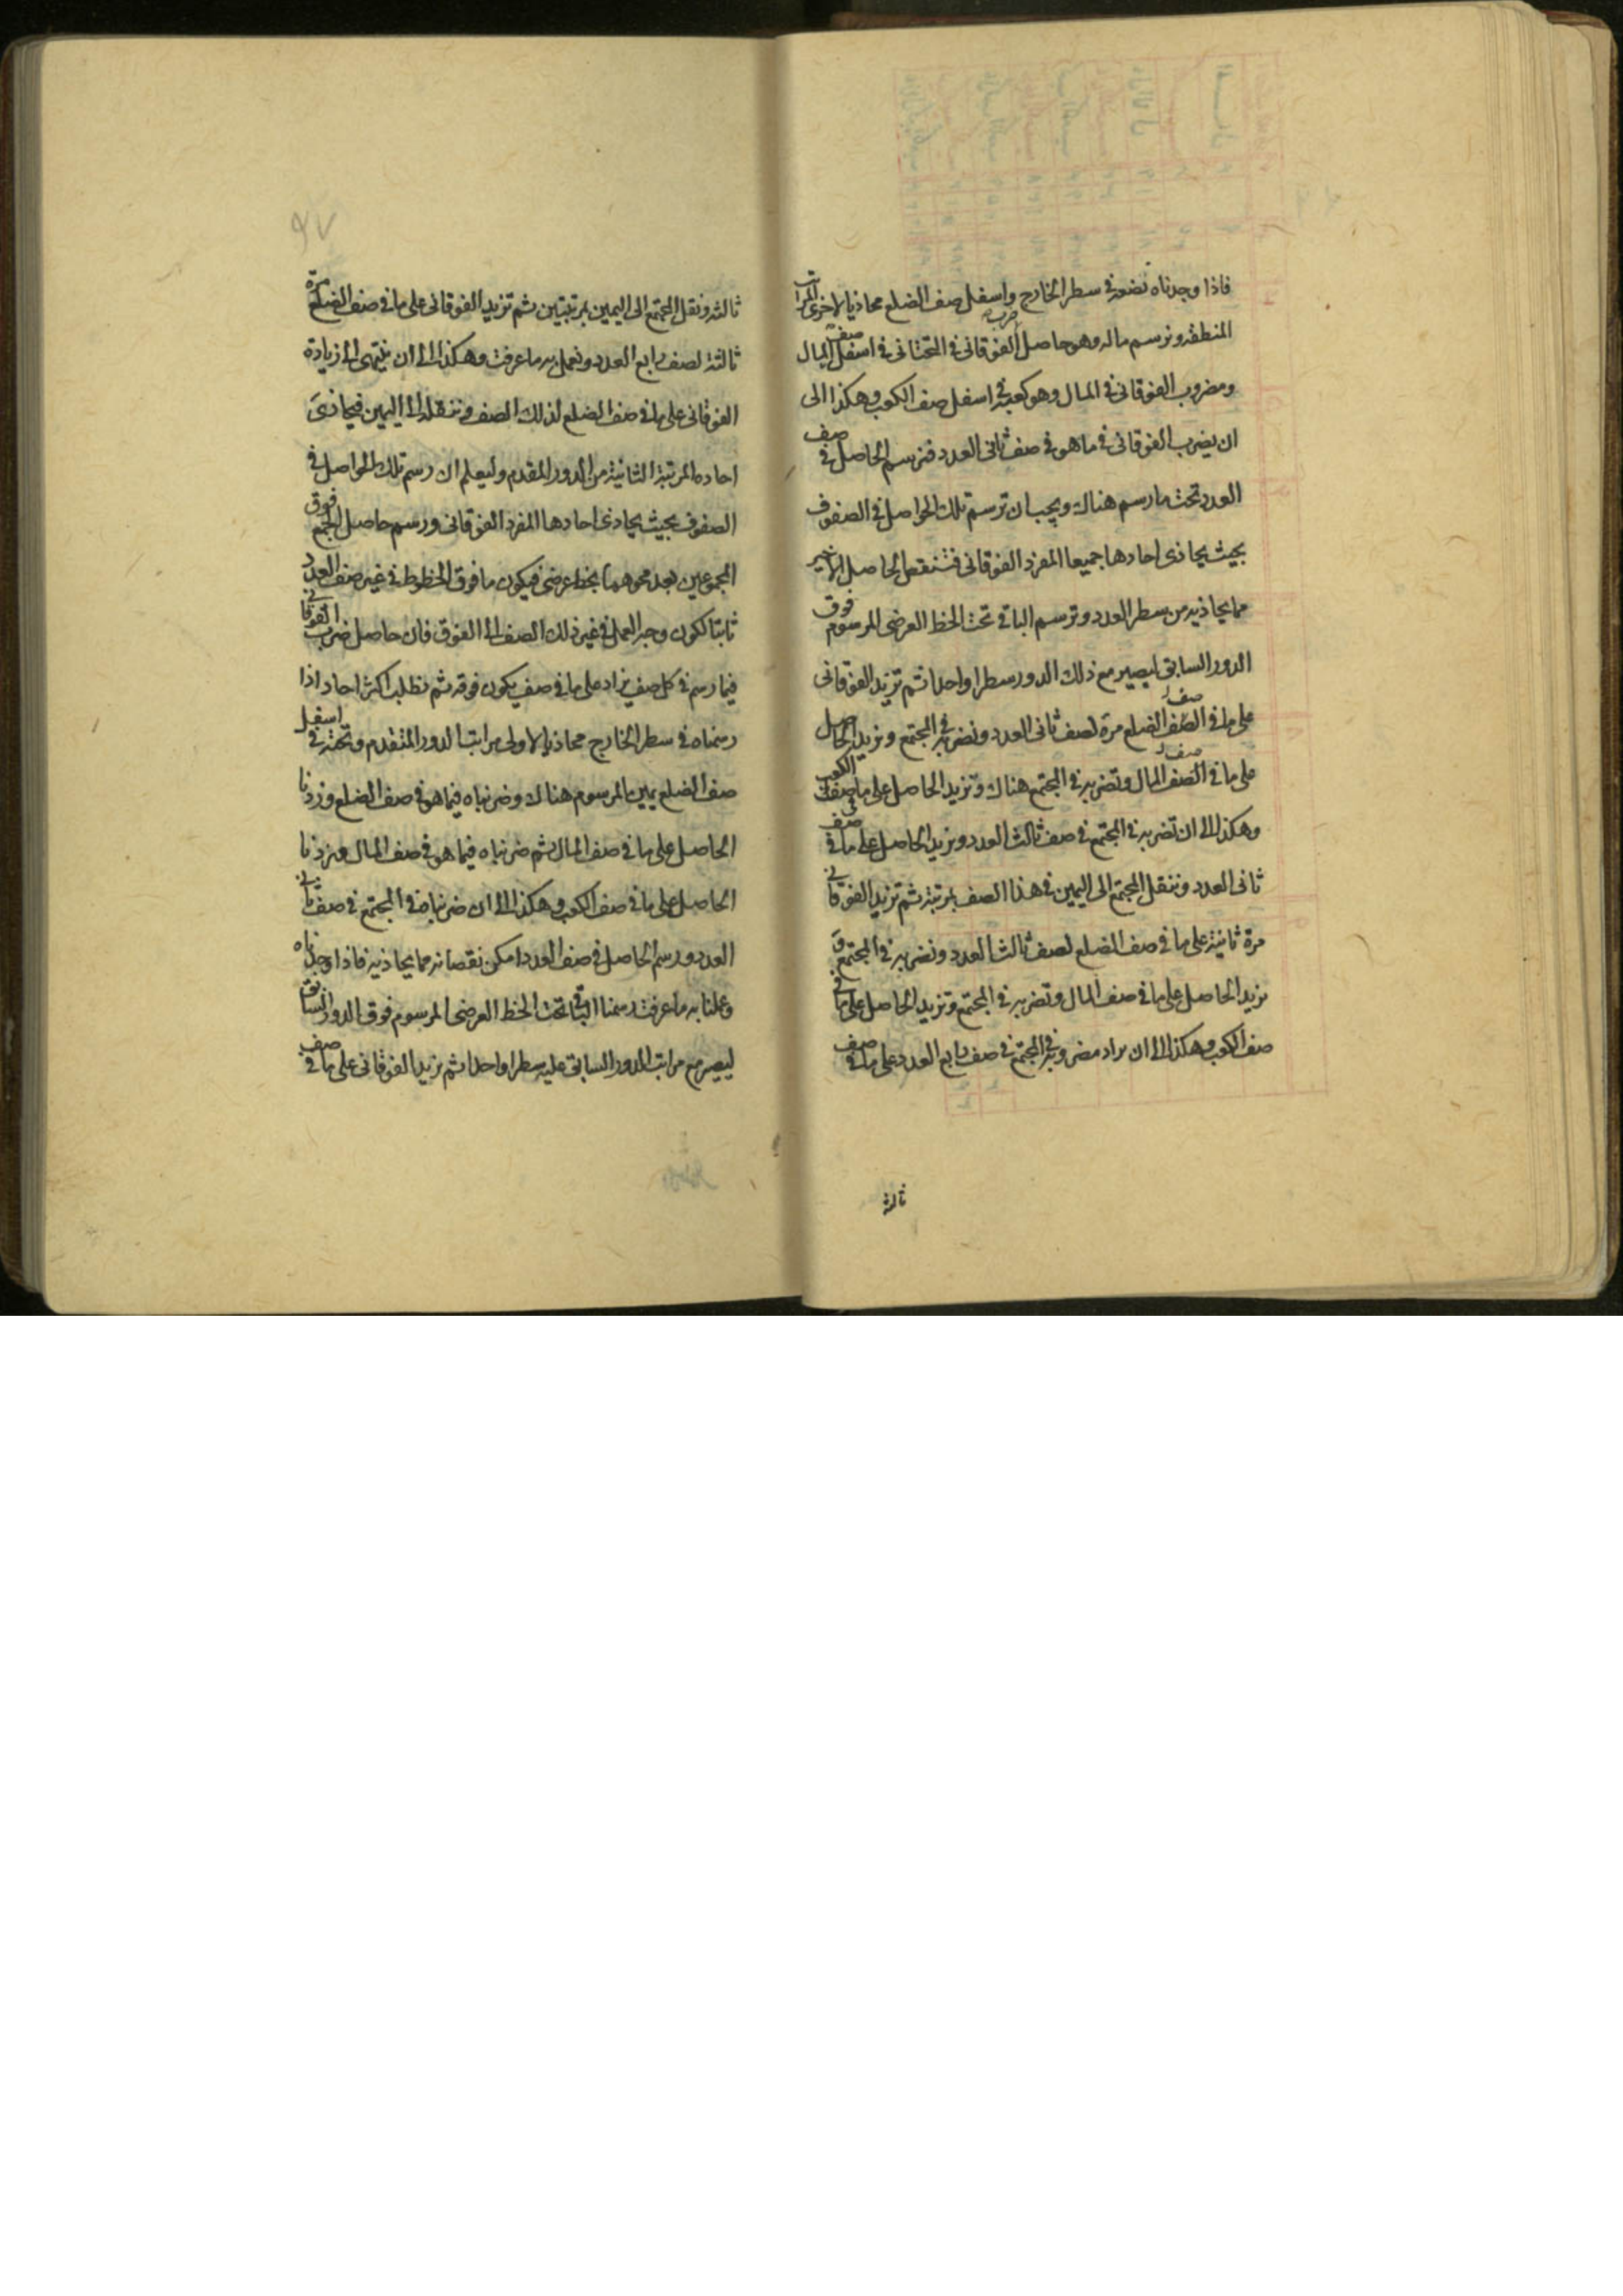 فاذا وجدناه نضعه في سطر الخارج واسفل صف الضلع محاذيا لاخرى المراتب
المنطقه ونرسم ماله وهو حاصل ضرب الفوقانى في التحتانى في اسفل صف المال
ومضروب الفوقانى في المال وهو كعبه في اسفل صف الكعب وهكذا الى
ان يضرب الفوقانى في ما هو في صف ثانى العدد فنرسم الحاصل في صف
العدد تحت ما رسم هناك ويجب ان ترسم تلك الحواصل في الصفوف
بحيث يحاذى احادها جميعا المفرد الفوقانى فننقص الحاصل الاخير
مما يحاذيه من سطر العدد وترسم الباقى تحت الخط العرضى المرسوم فوق
الدور السابق ليصير مع ذلك الدور سطرا واحدا ثم تزيد الفوقانى
على ما في الصف الضلع مرة لصف ثانى العدد ونضربه في المجتمع ونزيد الحاصل
على ما في الصف المال ونضربه في المجتمع هناك ونزيد الحاصل على ما في صف الكعب
وهكذا الى ان تضربه في المجتمع في صف ثالث العدد ونزيد الحاصل على ما في صف
ثانى العدد وننقل المجتمع الى اليمين في هذا الصف بمرتبة ثم تزيد الفوقانى
مرة ثانية على ما في صف الضلع لصف ثالث العدد ونضربه في المجتمع و
نزيد الحاصل على ما في صف المال ونضربه في المجتمع ونزيد الحاصل على ما في
صف الكعب وهكذا الى ان يزاد مضروبه في المجتمع في صف رابع العدد على ما في صف
ثالثه
٩٧
ثالثه وننقل المجتمع الى اليمين بمرتبتين ثم تزيد الفوقانى على ما في صف الضلع مرة
ثالثة لصف رابع العدد ونعمل به ما عرفت وهكذا الى ان ينتهى الى زيادة
الفوقانى على ما في صف الضلع لذلك الصف وننقله الى اليمين فيحاذى
احاده المرتبة الثانية من الدور المقدم وليعلم ان رسم تلك الحواصل في
الصفوف بحيث يحاذى احادها المفرد الفوقانى ورسم حاصل الجمع فوق
المجموعين بعد محوهما بخط عرضى فيكون ما فوق الخطوط في غير صف العدد
ثابتا لكون وجه العمل في غير ذلك الصف الى الفوق فان حاصل ضرب الفوقانى
فيما رسم في كل صف يزاد على ما في صف يكون فوقه ثم نطلب اكثر احاد اذا
رسمناه في سطر الخارج محاذيا لاولى مراتب الدور المتقدم وتحته في اسفل
صف الضلع بيمين المرسوم هناك وضربناه فيما هو في صف الضلع وزدنا
الحاصل على ما في صف المال ثم ضربناه فيما هو في صف المال وزدنا
الحاصل على ما في صف الكعب وهكذا الى ان ضربناه في المجتمع في صف ثانى
العدد ورسم الحاصل في صف العدد امكن نقصانه مما يحاذيه فاذا وجدناه
وعملنا به ما عرفت رسمنا الباقى تحت الخط العرضى المرسوم فوق الدور السابق
ليصير مع مراتب الدور السابق عليه سطرا واحدا ثم نزيد الفوقانى على ما في صف